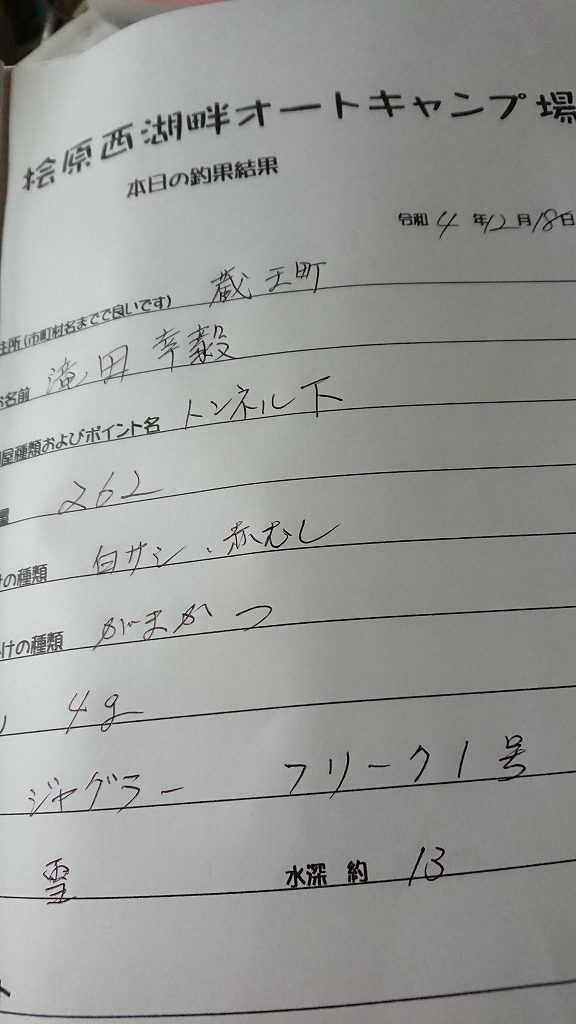 桧原西湖畔オートキャンプ場
本日の釣果結果
令和 4 年 12 月 18 日
住所(市町村名までで良いです) 蔵王町
お名前 滝田 幸毅
屋種類およびポイント名 トンネル下
量 262
けの種類 白サシ、赤むし
けの種類 がまかつ
4g
ジャグラー フリーク1号
雪 水深 約 13